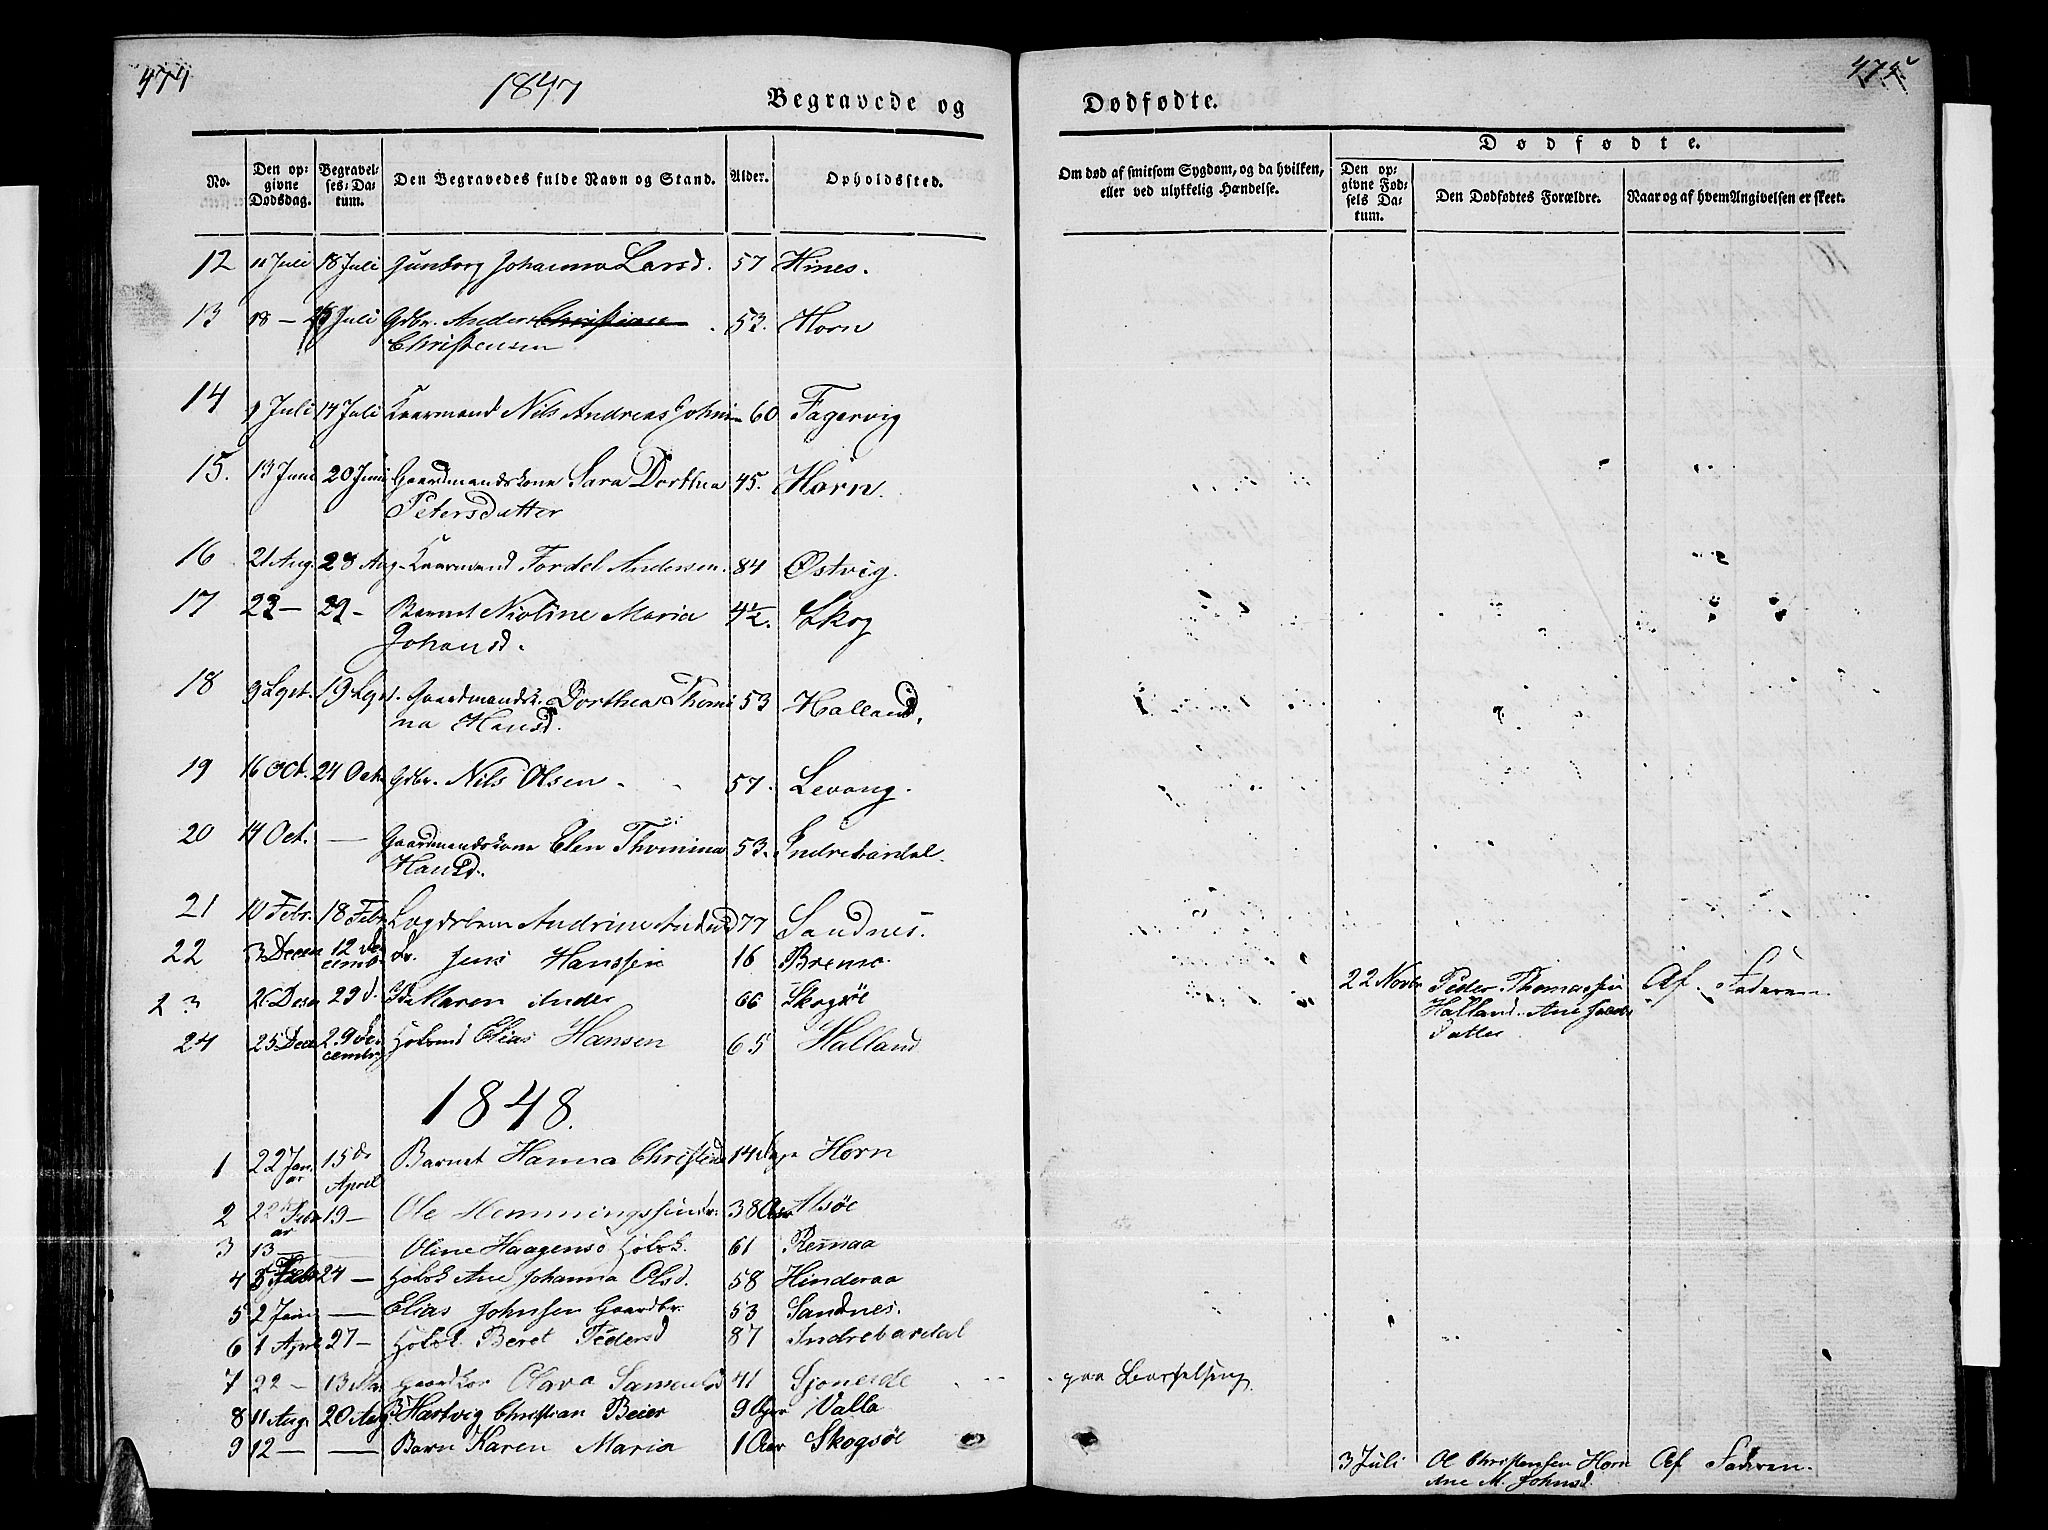 474
1847
Begravede og
No.
Den op-
givne
Dødsdag.
Begravel-
ses-Da-
tum.
Den Begravedes fulde Navn og Stand.
Alder.
Opholdssted.
12 11 Juli 18 Juli Gunborg Johanna Larsd. 57 Hines.
13 18 — 25 Juli Gdbr. Anders Christian 53. Horn
Christensen
14 9 Juli 14 Juli Kaarmand Nils Andreas 60 Fagervig
15. 13 Juni 20 Juni Gaardmandskone Sara Dorthea 45. Horn.
Petersdatter
16 21 Aug. 28 Aug. Kaarmand Tordel Andersen. 84 Østvig.
17 23 — 29 — Barnet Nicoline Maria 4½. Skog
Johansd.
18 9 Sept. 19 Sept. Gaardmandsk. Dorthea Thomi 53 Halland.
na Hansd.
19 16 Oct. 24 Oct. Gdbr. Nils Olsen 57. Levang.
20 14 Oct. — Gaardmandskone Elen Thomina 53. Indrebardal.
Hansd.
21 10 Febr. 18 Febr. Andrine 77 Sandnes.
22 3 Decem 12 De
cemb. Jens Hanssen 16 Bremo.
23 Decm 29 d. Karen Anders 66 Skogsøe
24 25 Decem 29 De
cembr Elias Hansen 65 Halland
1848.
1 22 Jan. 15 de Barnet Hanna 14 Dage Horn
ar April
2 22 Febru 19 — Ole Hemmingssen 38 Aar Alsøe
ar
3 13 — — Oline Haagensd 61 Remaa
4 5 Febr 24 — Ane Johanna Olsd. 58 Hinderaa
5 2 Juni — Elias Johnsen Gaardbr. 53 Sandnes.
6 1 April 27 — Beret Pedersd 87 Indrebardal
7 22 — 13 Mai Olava 41 Sjoneide
8 11 Aug. 20 Aug Hartvig Christian Beier 9 Aar Valla
9 12 — — Barn Karen Maria 1 Aar Skogsøe
Dødfødte.
Om død af smitsom Sygdom, og da hvilken,
eller ved ulykkelig Hændelse.
Dødfødte.
Den op-
givne Fød-
sels Da-
tum.
Den Dødfødtes Forældre.
Naar og af hvem Angivelsen er skeet.
22 Novbr Peder Thomassen Af Faderen.
Halland. Ane
datter
paa Barselseng
3 Juli Ol Christensen Horn Af Faderen.
Ane M. Johnsd.